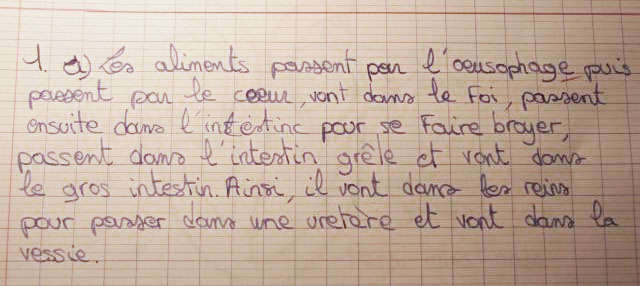 1. a) Les aliments passent par l'oeusophage puis
passent par le coeur, vont dans le Foi, passent
ensuite dans l'intestinc pour se Faire broyer,
passent dans l'intestin grêle et vont dans
le gros intestin. Ainsi, il vont dans les reins
pour passer dans une uretère et vont dans la
vessie.